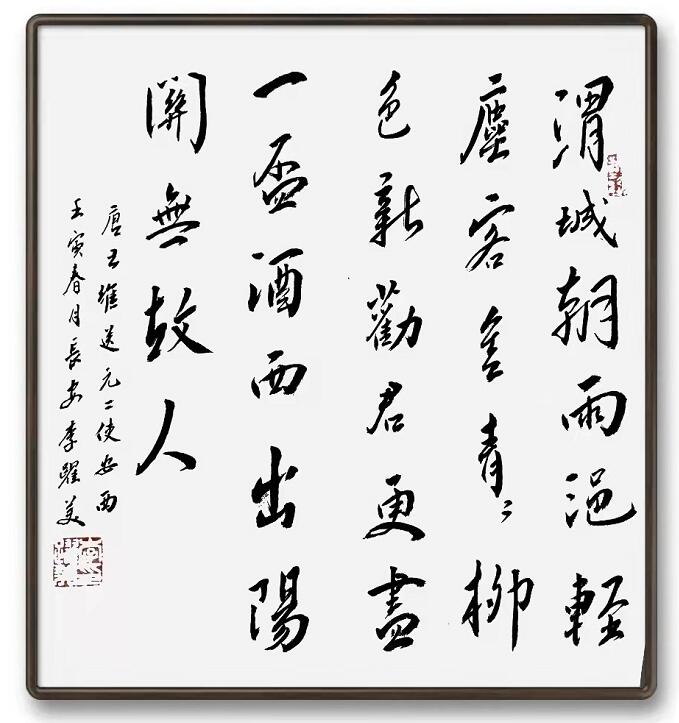 渭城朝雨浥輕
塵客舍青々柳
色新勸君更盡
一盃酒西出陽
關無故人
唐王維送元二使安西
壬寅春月長安李美